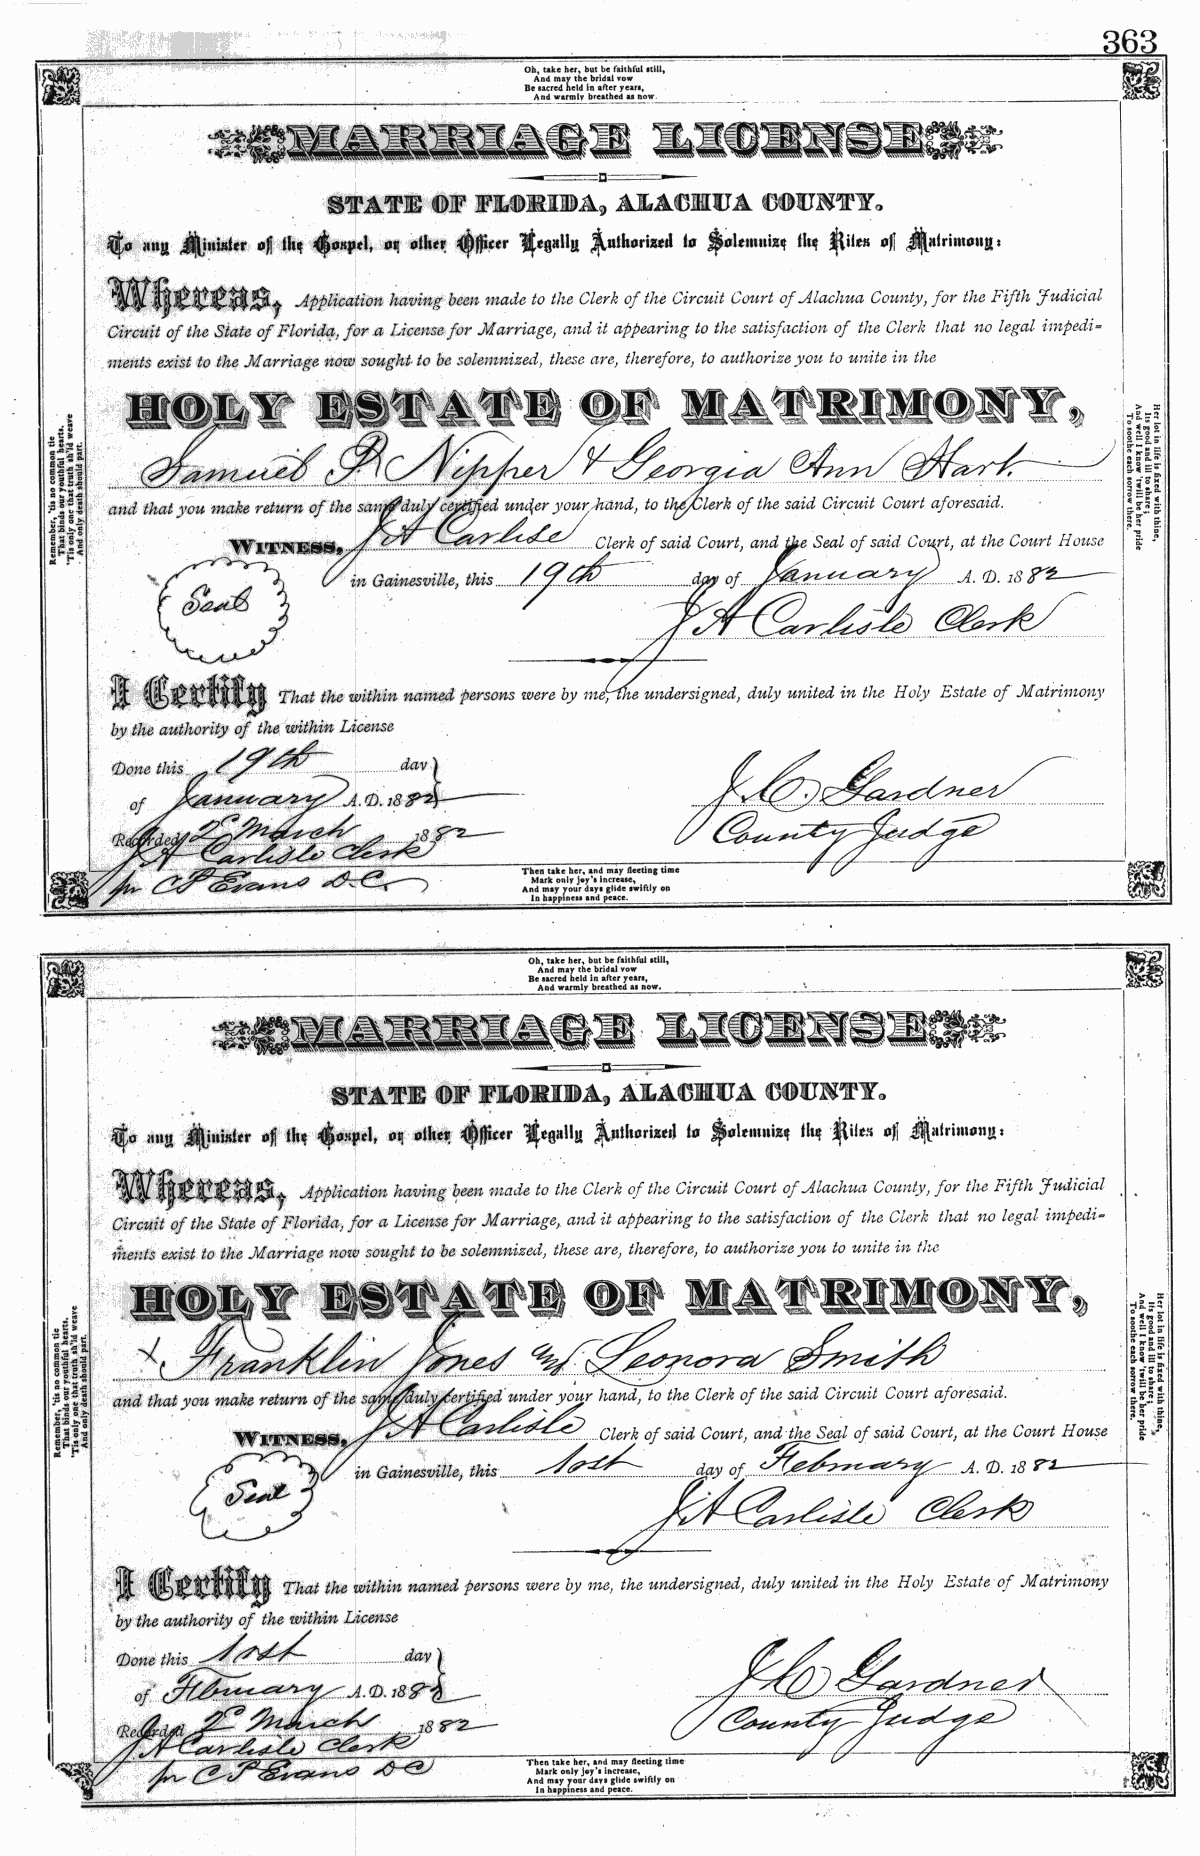 363
Oh, take her, but be faithful still,
And may the bridal vow
Be sacred held in after years,
And warmly breathed as now.
MARRIAGE LICENSE
STATE OF FLORIDA, ALACHUA COUNTY.
To any Minister of the Gospel, or other Officer Legally Authorized to Solemnize the Rites of Matrimony:
Whereas, Application having been made to the Clerk of the Circuit Court of Alachua County, for the Fifth Judicial
Circuit of the State of Florida, for a License for Marriage, and it appearing to the satisfaction of the Clerk that no legal impedi-
ments exist to the Marriage now sought to be solemnized, these are, therefore, to authorize you to unite in the
HOLY ESTATE OF MATRIMONY,
Samuel R Nipper & Georgia Ann Hart.
and that you make return of the same duly certified under your hand, to the Clerk of the said Circuit Court aforesaid.
WITNESS, J A Carlisle Clerk of said Court, and the Seal of said Court, at the Court House
Seal
in Gainesville, this 19th day of January A. D. 1882
J A Carlisle Clerk
I Certify That the within named persons were by me, the undersigned, duly united in the Holy Estate of Matrimony
by the authority of the within License
Done this 19th day
of January A. D. 1882
J. C. Gardner
County Judge
Recorded 2d March 1882
J A Carlisle Clerk
pr C P Evans D.C.
Then take her, and may fleeting time
Mark only joy's increase,
And may your days glide swiftly on
In happiness and peace.
Remember, 'tis no common tie
That binds our youthful hearts.
'Tis only one that truth sh'ld weave
And only death should part.
Her lot in life is fixed with thine,
Its good and ill to share;
And well I know 'twill be her pride
To soothe each sorrow there.
Oh, take her, but be faithful still,
And may the bridal vow
Be sacred held in after years,
And warmly breathed as now.
MARRIAGE LICENSE
STATE OF FLORIDA, ALACHUA COUNTY.
To any Minister of the Gospel, or other Officer Legally Authorized to Solemnize the Rites of Matrimony:
Whereas, Application having been made to the Clerk of the Circuit Court of Alachua County, for the Fifth Judicial
Circuit of the State of Florida, for a License for Marriage, and it appearing to the satisfaction of the Clerk that no legal impedi-
ments exist to the Marriage now sought to be solemnized, these are, therefore, to authorize you to unite in the
HOLY ESTATE OF MATRIMONY,
x Franklin Jones and Leonora Smith
and that you make return of the same duly certified under your hand, to the Clerk of the said Circuit Court aforesaid.
WITNESS, J A Carlisle Clerk of said Court, and the Seal of said Court, at the Court House
Seal
in Gainesville, this 1st day of February A. D. 1882
J A Carlisle Clerk
I Certify That the within named persons were by me, the undersigned, duly united in the Holy Estate of Matrimony
by the authority of the within License
Done this 1st day
of February A. D. 1882
J C Gardner
County Judge
Recorded 2d March 1882
J A Carlisle Clerk
pr C P Evans D C
Then take her, and may fleeting time
Mark only joy's increase,
And may your days glide swiftly on
In happiness and peace.
Remember, 'tis no common tie
That binds our youthful hearts.
'Tis only one that truth sh'ld weave
And only death should part.
Her lot in life is fixed with thine,
Its good and ill to share;
And well I know 'twill be her pride
To soothe each sorrow there.